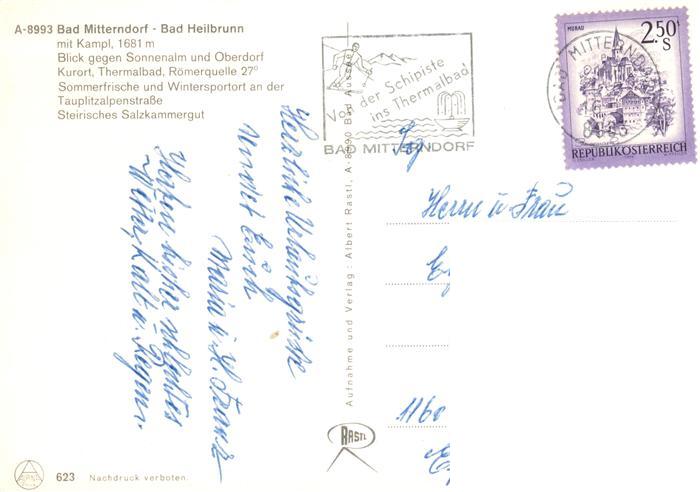 A-8993 Bad Mitterndorf - Bad Heilbrunn
mit Kampl, 1681 m
Blick gegen Sonnenalm und Oberdorf
Kurort, Thermalbad, Römerquelle 27°
Sommerfrische und Wintersportort an der
Tauplitzalpenstraße
Steirisches Salzkammergut
Von der Schipiste
ins Thermalbad
BAD MITTERNDORF
MURAU
2.50
S
REPUBLIK ÖSTERREICH
BAD MITTERNDORF
8983
Herzliche Urlaubsgrüsse
sendet Euch
Maria u.
Haben bisher schlechtes
Wetter, Kalt u. Regen.
Aufnahme und Verlag: Albert Rastl, A-8990 Bad Aussee
Fa
Herrn u Frau
1160
RASTL
623 Nachdruck verboten.